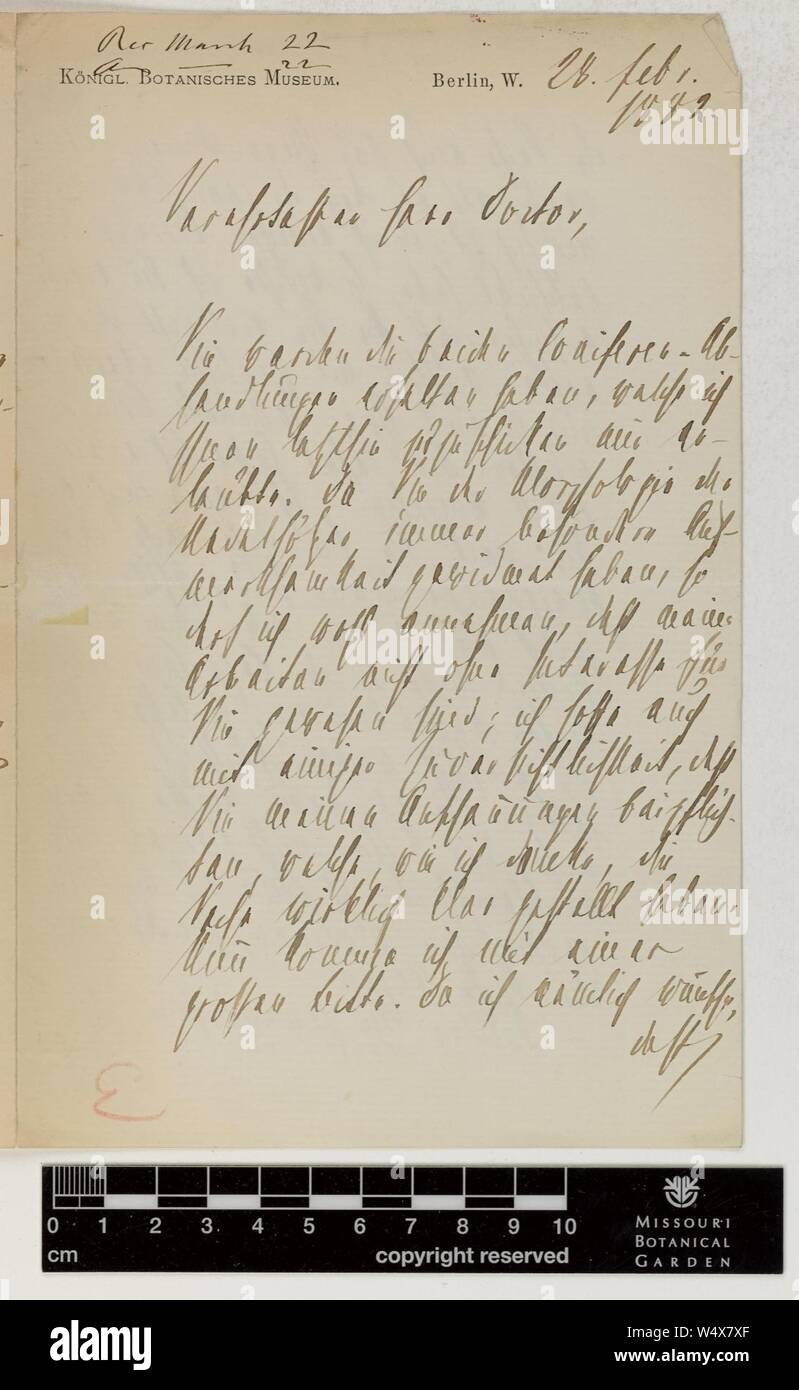 Rec March 22
KÖNIGL. BOTANISCHES MUSEUM.
Berlin, W. 28. Febr.
1882.
Verehrtester Herr Doctor,
Sie werden die beiden Coniferen-Ab-
handlungen erhalten haben, welche ich
Ihnen letzthin zuzuschicken mir er-
laubte. Da Sie der Morphologie der
Nadelhölzer immer besondere Auf-
merksamkeit gewidmet haben, so
darf ich wohl annehmen, daß meine
Arbeiten nicht ohne Interesse für
Sie gewesen sind; ich hoffe auch
mit einiger Zuversichtlichkeit, daß
Sie meinen Anschauungen beipflich-
ten, welche, wie ich denke, die
Sache wirklich klar gestellt haben.
Nun komme ich mit einer
großen Bitte. Da ich nämlich wünsche,
daß
3
0 1 2 3 4 5 6 7 8 9 10
cm
copyright reserved
MISSOURI
BOTANICAL
GARDEN
a alamy stock photo
alamy
Image ID: W4X7XF
www.alamy.com